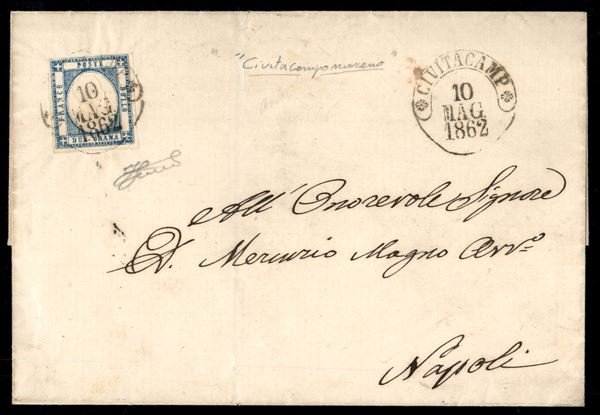 "Civitacampomarano"
FRANCO
POSTE
BOLLO
DUE GRANA
10
MAG.
1862
CIVITACAMP.
10
MAG.
1862
All' Onorevole Signore
D. Mercurio Magno Avv.º
Napoli